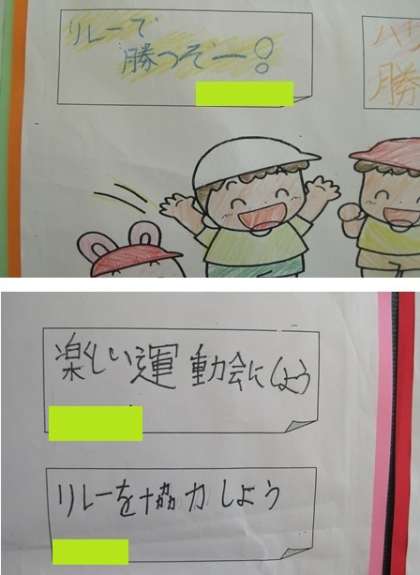 リレーで
勝つぞー!
ハチ
勝
楽しい運動会にしよう
リレーを協力しよう